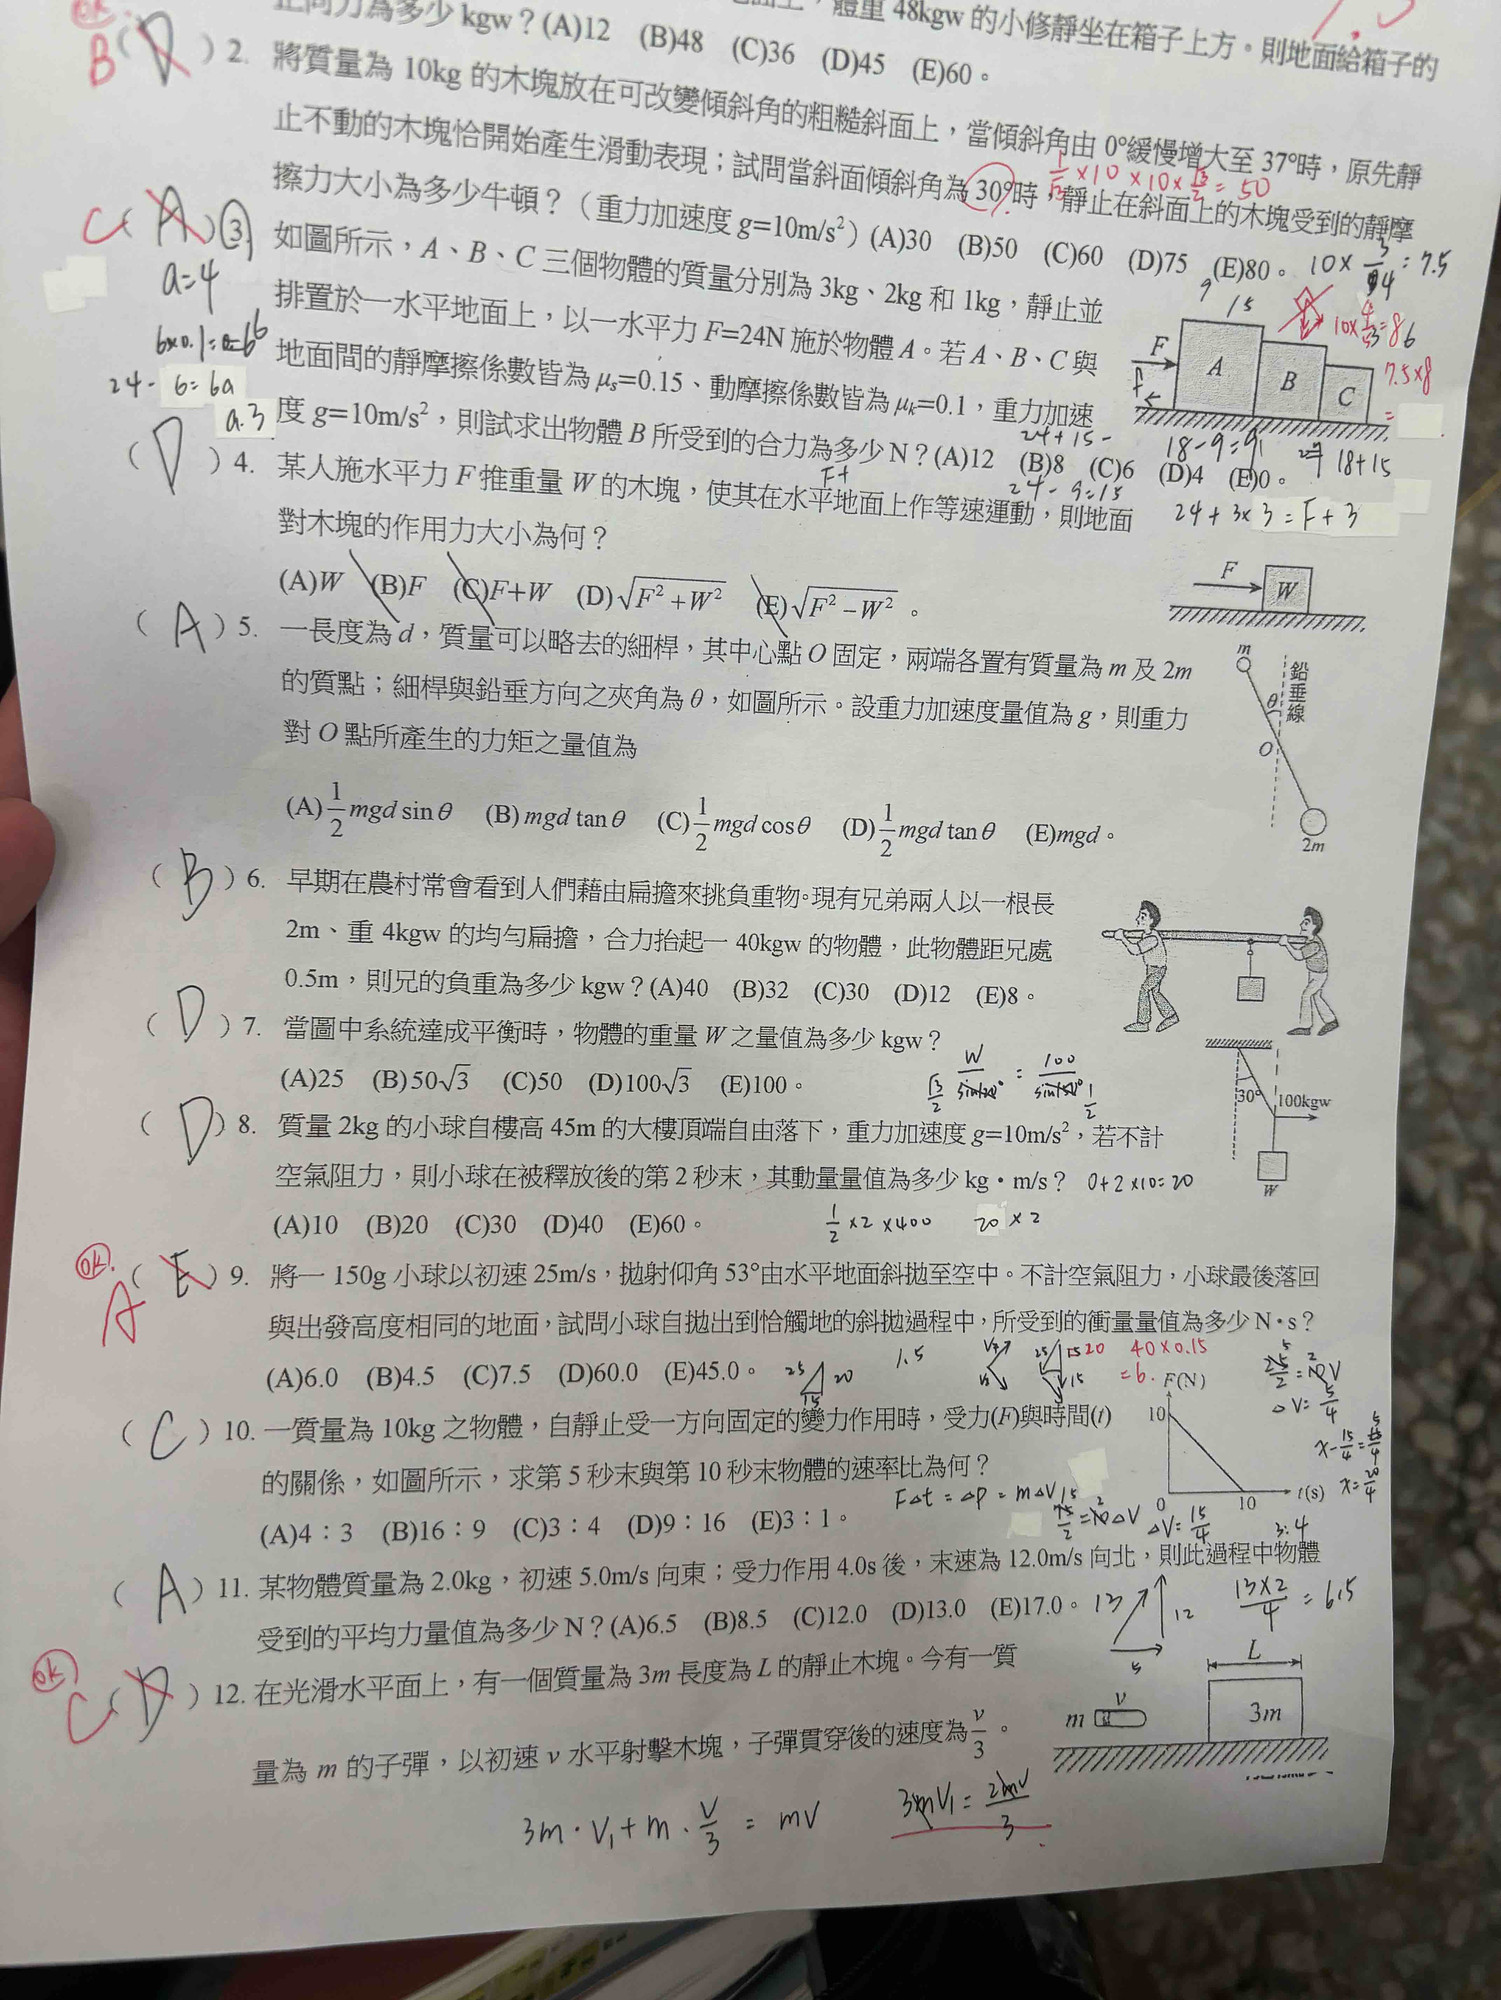 正向力為多少 kgw？(A)12 (B)48 (C)36 (D)45 (E)60。
體重 48kgw 的小修靜坐在箱子上方。則地面給箱子的
ok
B ( D ) 2. 將質量為 10kg 的木塊放在可改變傾斜角的粗糙斜面上，當傾斜角由 0°緩慢增大至 37°時，原先靜
止不動的木塊恰開始產生滑動表現；試問當斜面傾斜角為 30°時，靜止在斜面上的木塊受到的靜摩
擦力大小為多少牛頓？（重力加速度 g=10m/s²）(A)30 (B)50 (C)60 (D)75 (E)80。
10× 3/4 = 7.5
C ( A ) 3. 如圖所示，A、B、C 三個物體的質量分別為 3kg、2kg 和 1kg，靜止並
排置於一水平地面上，以一水平力 F=24N 施於物體 A。若 A、B、C 與
地面間的靜摩擦係數皆為 μs=0.15、動摩擦係數皆為 μk=0.1，重力加速
度 g=10m/s²，則試求出物體 B 所受到的合力為多少 N？(A)12 (B)8 (C)6 (D)4 (E)0。
a=4
24-6=6a
a=3
F A B C
7.5×8
24+15-
18-9=9
18+15
24-9=15
24+3×3=F+3
( D ) 4. 某人施水平力 F 推重量 W 的木塊，使其在水平地面上作等速運動，則地面
對木塊的作用力大小為何？
(A)W (B)F (C)F+W (D)√(F²+W²) (E)√(F²−W²)。
F W
( A ) 5. 一長度為 d，質量可以略去的細桿，其中心點 O 固定，兩端各置有質量為 m 及 2m
的質點；細桿與鉛垂方向之夾角為 θ，如圖所示。設重力加速度量值為 g，則重力
對 O 點所產生的力矩之量值為
(A)1/2 mgd sinθ (B) mgd tanθ (C)1/2 mgd cosθ (D)1/2 mgd tanθ (E)mgd。
m
鉛垂線
θ
O
2m
( B ) 6. 早期在農村常會看到人們藉由扁擔來挑負重物。現有兄弟兩人以一根長
2m、重 4kgw 的均勻扁擔，合力抬起一 40kgw 的物體，此物體距兄處
0.5m，則兄的負重為多少 kgw？(A)40 (B)32 (C)30 (D)12 (E)8。
( D ) 7. 當圖中系統達成平衡時，物體的重量 W 之量值為多少 kgw？
(A)25 (B)50√3 (C)50 (D)100√3 (E)100。
30° 100kgw
W
( D ) 8. 質量 2kg 的小球自樓高 45m 的大樓頂端自由落下，重力加速度 g=10m/s²，若不計
空氣阻力，則小球在被釋放後的第 2 秒末，其動量量值為多少 kg・m/s？ 0+2×10=20
(A)10 (B)20 (C)30 (D)40 (E)60。 1/2 ×2 ×400 20×2
ok.
A ( E ) 9. 將一 150g 小球以初速 25m/s，拋射仰角 53°由水平地面斜拋至空中。不計空氣阻力，小球最後落回
與出發高度相同的地面，試問小球自拋出到恰觸地的斜拋過程中，所受到的衝量量值為多少 N・s？
(A)6.0 (B)4.5 (C)7.5 (D)60.0 (E)45.0。 25 20 15 1.5
40×0.15
=6.
( C ) 10. 一質量為 10kg 之物體，自靜止受一方向固定的變力作用時，受力(F)與時間(t)
的關係，如圖所示，求第 5 秒末與第 10 秒末物體的速率比為何？
F△t = △P = m△V
(A)4：3 (B)16：9 (C)3：4 (D)9：16 (E)3：1。
F(N)
10
0 10 t(s)
△V= 15/4
△V= 5/4
3:4
( A ) 11. 某物體質量為 2.0kg，初速 5.0m/s 向東；受力作用 4.0s 後，末速為 12.0m/s 向北，則此過程中物體
受到的平均力量值為多少 N？(A)6.5 (B)8.5 (C)12.0 (D)13.0 (E)17.0。
13 12 5
13×2/4 = 6.5
ok
C ( D ) 12. 在光滑水平面上，有一個質量為 3m 長度為 L 的靜止木塊。今有一質
量為 m 的子彈，以初速 v 水平射擊木塊，子彈貫穿後的速度為 v/3。
L
v
m 3m
3m・V₁+m・V/3 = mV
3mV₁= 2mV/3